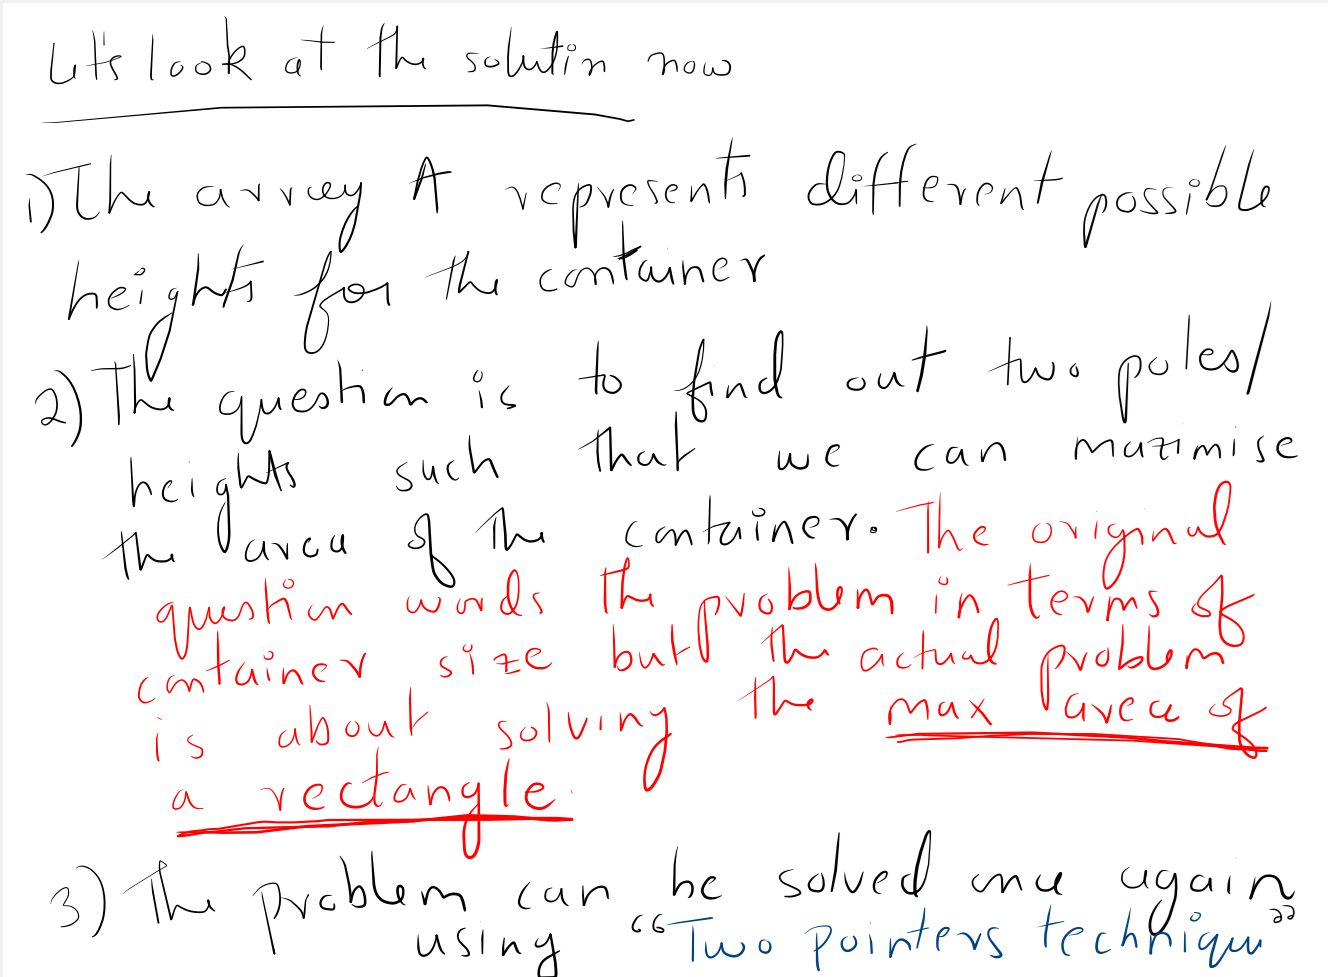 Let's look at the solutin now
1) The array A represents different possible
heights for the container
2) The question is to find out two poles/
heights such that we can maximise
the area of the container. The original
question words the problem in terms of
container size but the actual problem
is about solving the max area of
a rectangle.
3) The problem can be solved once again
using "Two pointers technique"